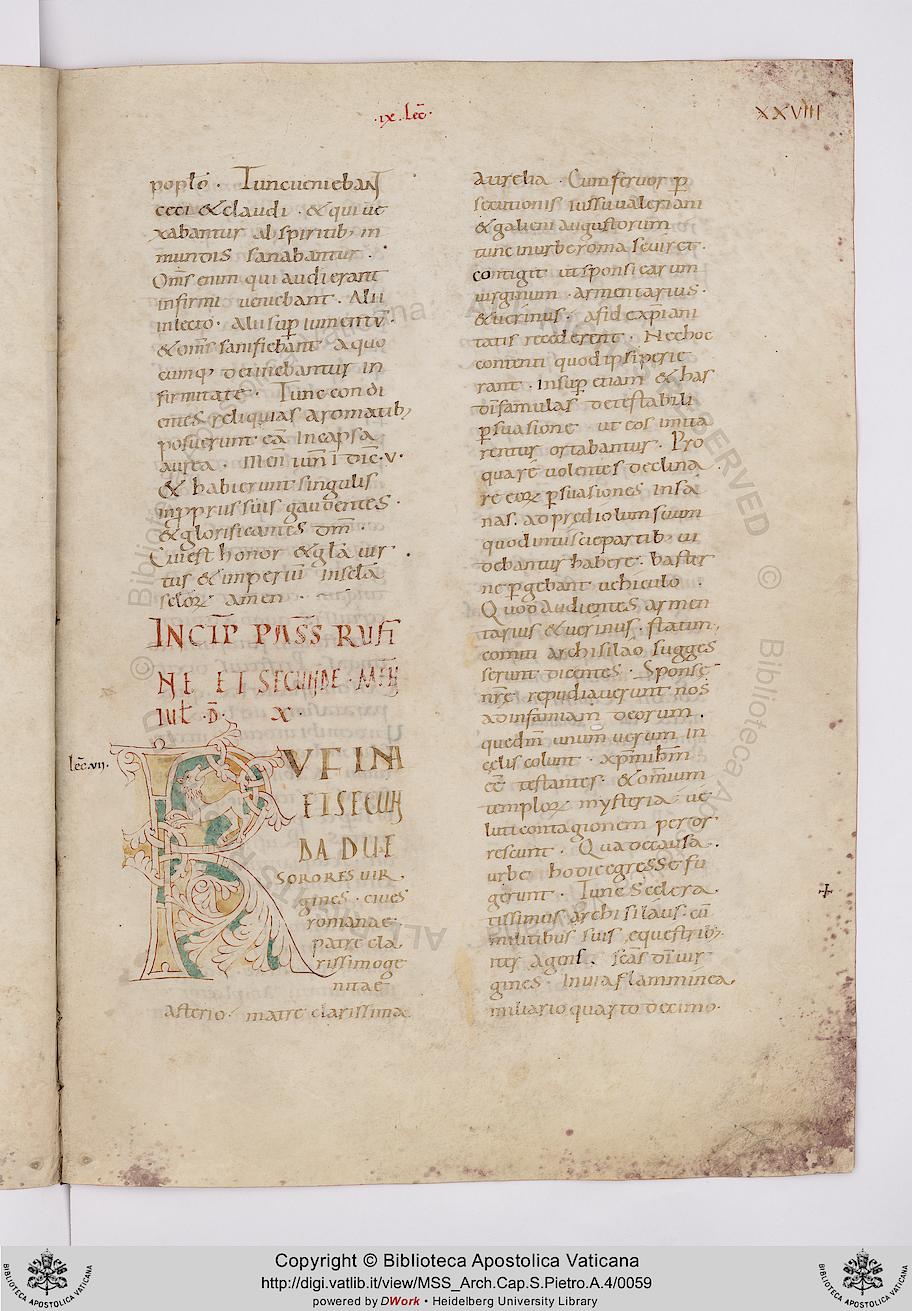 ·ix·Lec̄·
XXVIII
popło. Tunc ueniebant
ceci & claudi. & qui ue
xabantur ab spiritib; in
mundis sanabantur.
Om̄s enim qui audierant
infirmi ueniebant. Alii
inlecto. alii sup̄ iumentū.
& om̄s sanifiebant a quo
cumq; detinebantur in
firmitate. Tunc condi
entes reliquias aromatib;
posuerunt eā incapsa
aurea.
& habierunt singulis
inpprus suis gaudentes.
& glorificantes dm̄.
Cui est honor & gła uir
tus & imperiū insclā
sclorꝝ amen.
INCIP̄ PASS̄ RUFI
NE ET SECUNDE.
IUL̄. D. X.
Lec̄. vii.
RUFINA
ET SECUN
DA DUE
SORORES UIR.
gines. ciues
romanae
patre cla
rissimo ge
nitae
asterio. matre clarissima
aurelia. Cum feruor p̄
secutionis iussu ualeriani
& galieni augustorum
tunc in urbe roma seuiret.
contigit ut sponsi earum
uirginum. armentarius.
& uerinus. a fide xp̄iani
tatis recederent. Nec hoc
contenti quod ipsi perie
rant. Insup̄ etiam & has
dī famulas detestabili
p̄suasione ut eos imita
rentur ortabantur. Pro
quare uolentes declina
re eorꝝ p̄suasiones insa
nas. ad prędiolum suum
quod intusciepartib; ui
debantur habere. baster
ne p̄gebant uehiculo.
Quod audientes armen
tarius & uerinus. statim.
comiti archisilao sugges
serunt dicentes. Sponsę
nr̄e repudiauerunt nos
ad infamiam deorum.
quędm̄ unum uerum in
cęlis colunt. xp̄m ihm̄
eē testantes. & omnium
templorꝝ mysteria ue
luti contagionem peror
rescunt. Qua de causa.
urbe hodie egresse fu
gerunt. Tunc scelera
tissimus archisilaus. cū
militibus suis equestrib;
iter agens. scās dī uir
gines. Inuia flamminea.
miliario quarto decimo.
Copyright © Biblioteca Apostolica Vaticana
http://digi.vatlib.it/view/MSS_Arch.Cap.S.Pietro.A.4/0059
powered by DWork • Heidelberg University Library